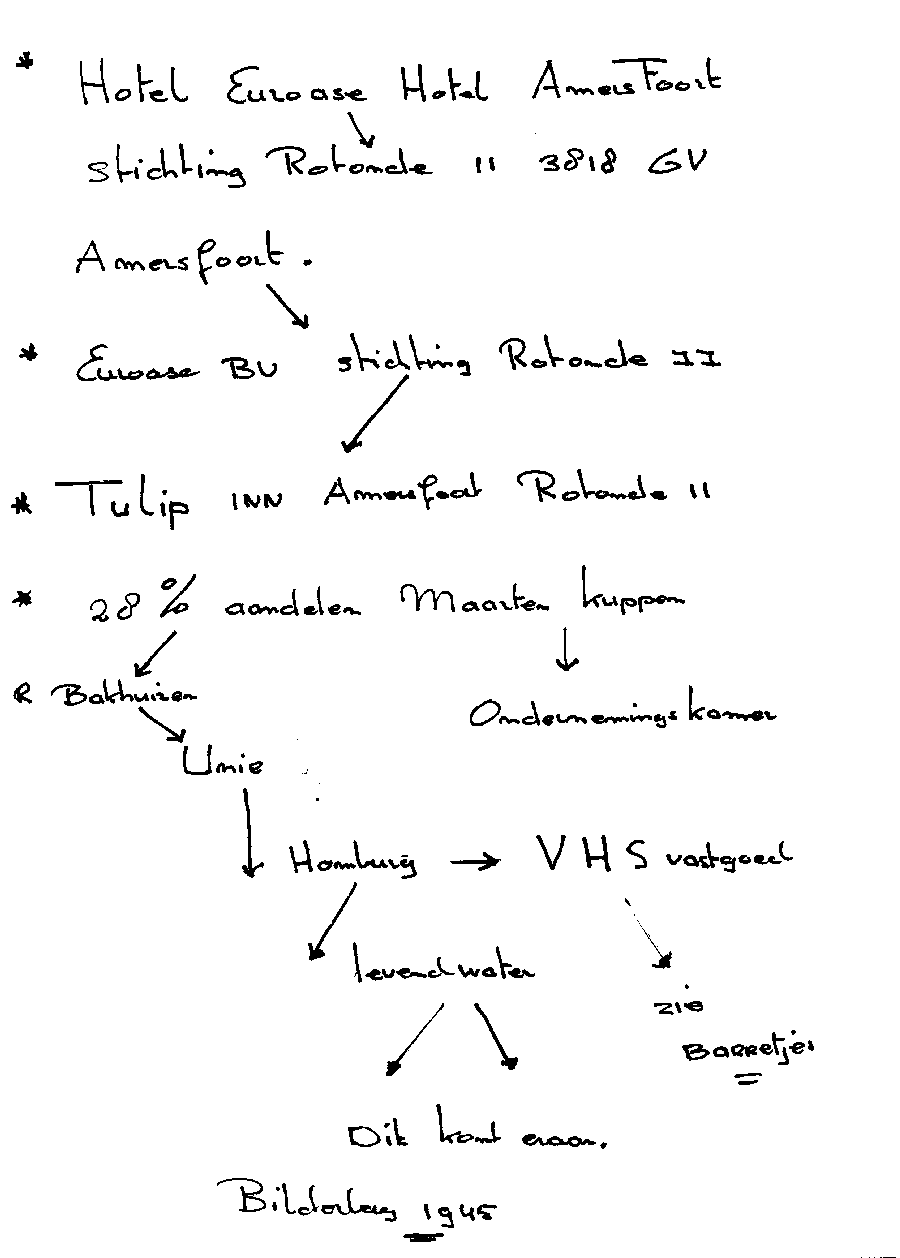 * Hotel Euroase Hotel Amersfoort
stichting Rotonde 11 3818 GV
Amersfoort.
* Euroase BV stichting Rotonde II
* Tulip INN Amersfoort Rotonde 11
* 28 % aandelen Maarten kuppen
R Bakhuizen
Ondernemingskamer
Unie
Homburg → VHS vastgoed
levend water
zie
Barretjes
Dit komt eraan.
Bilderberg 1945